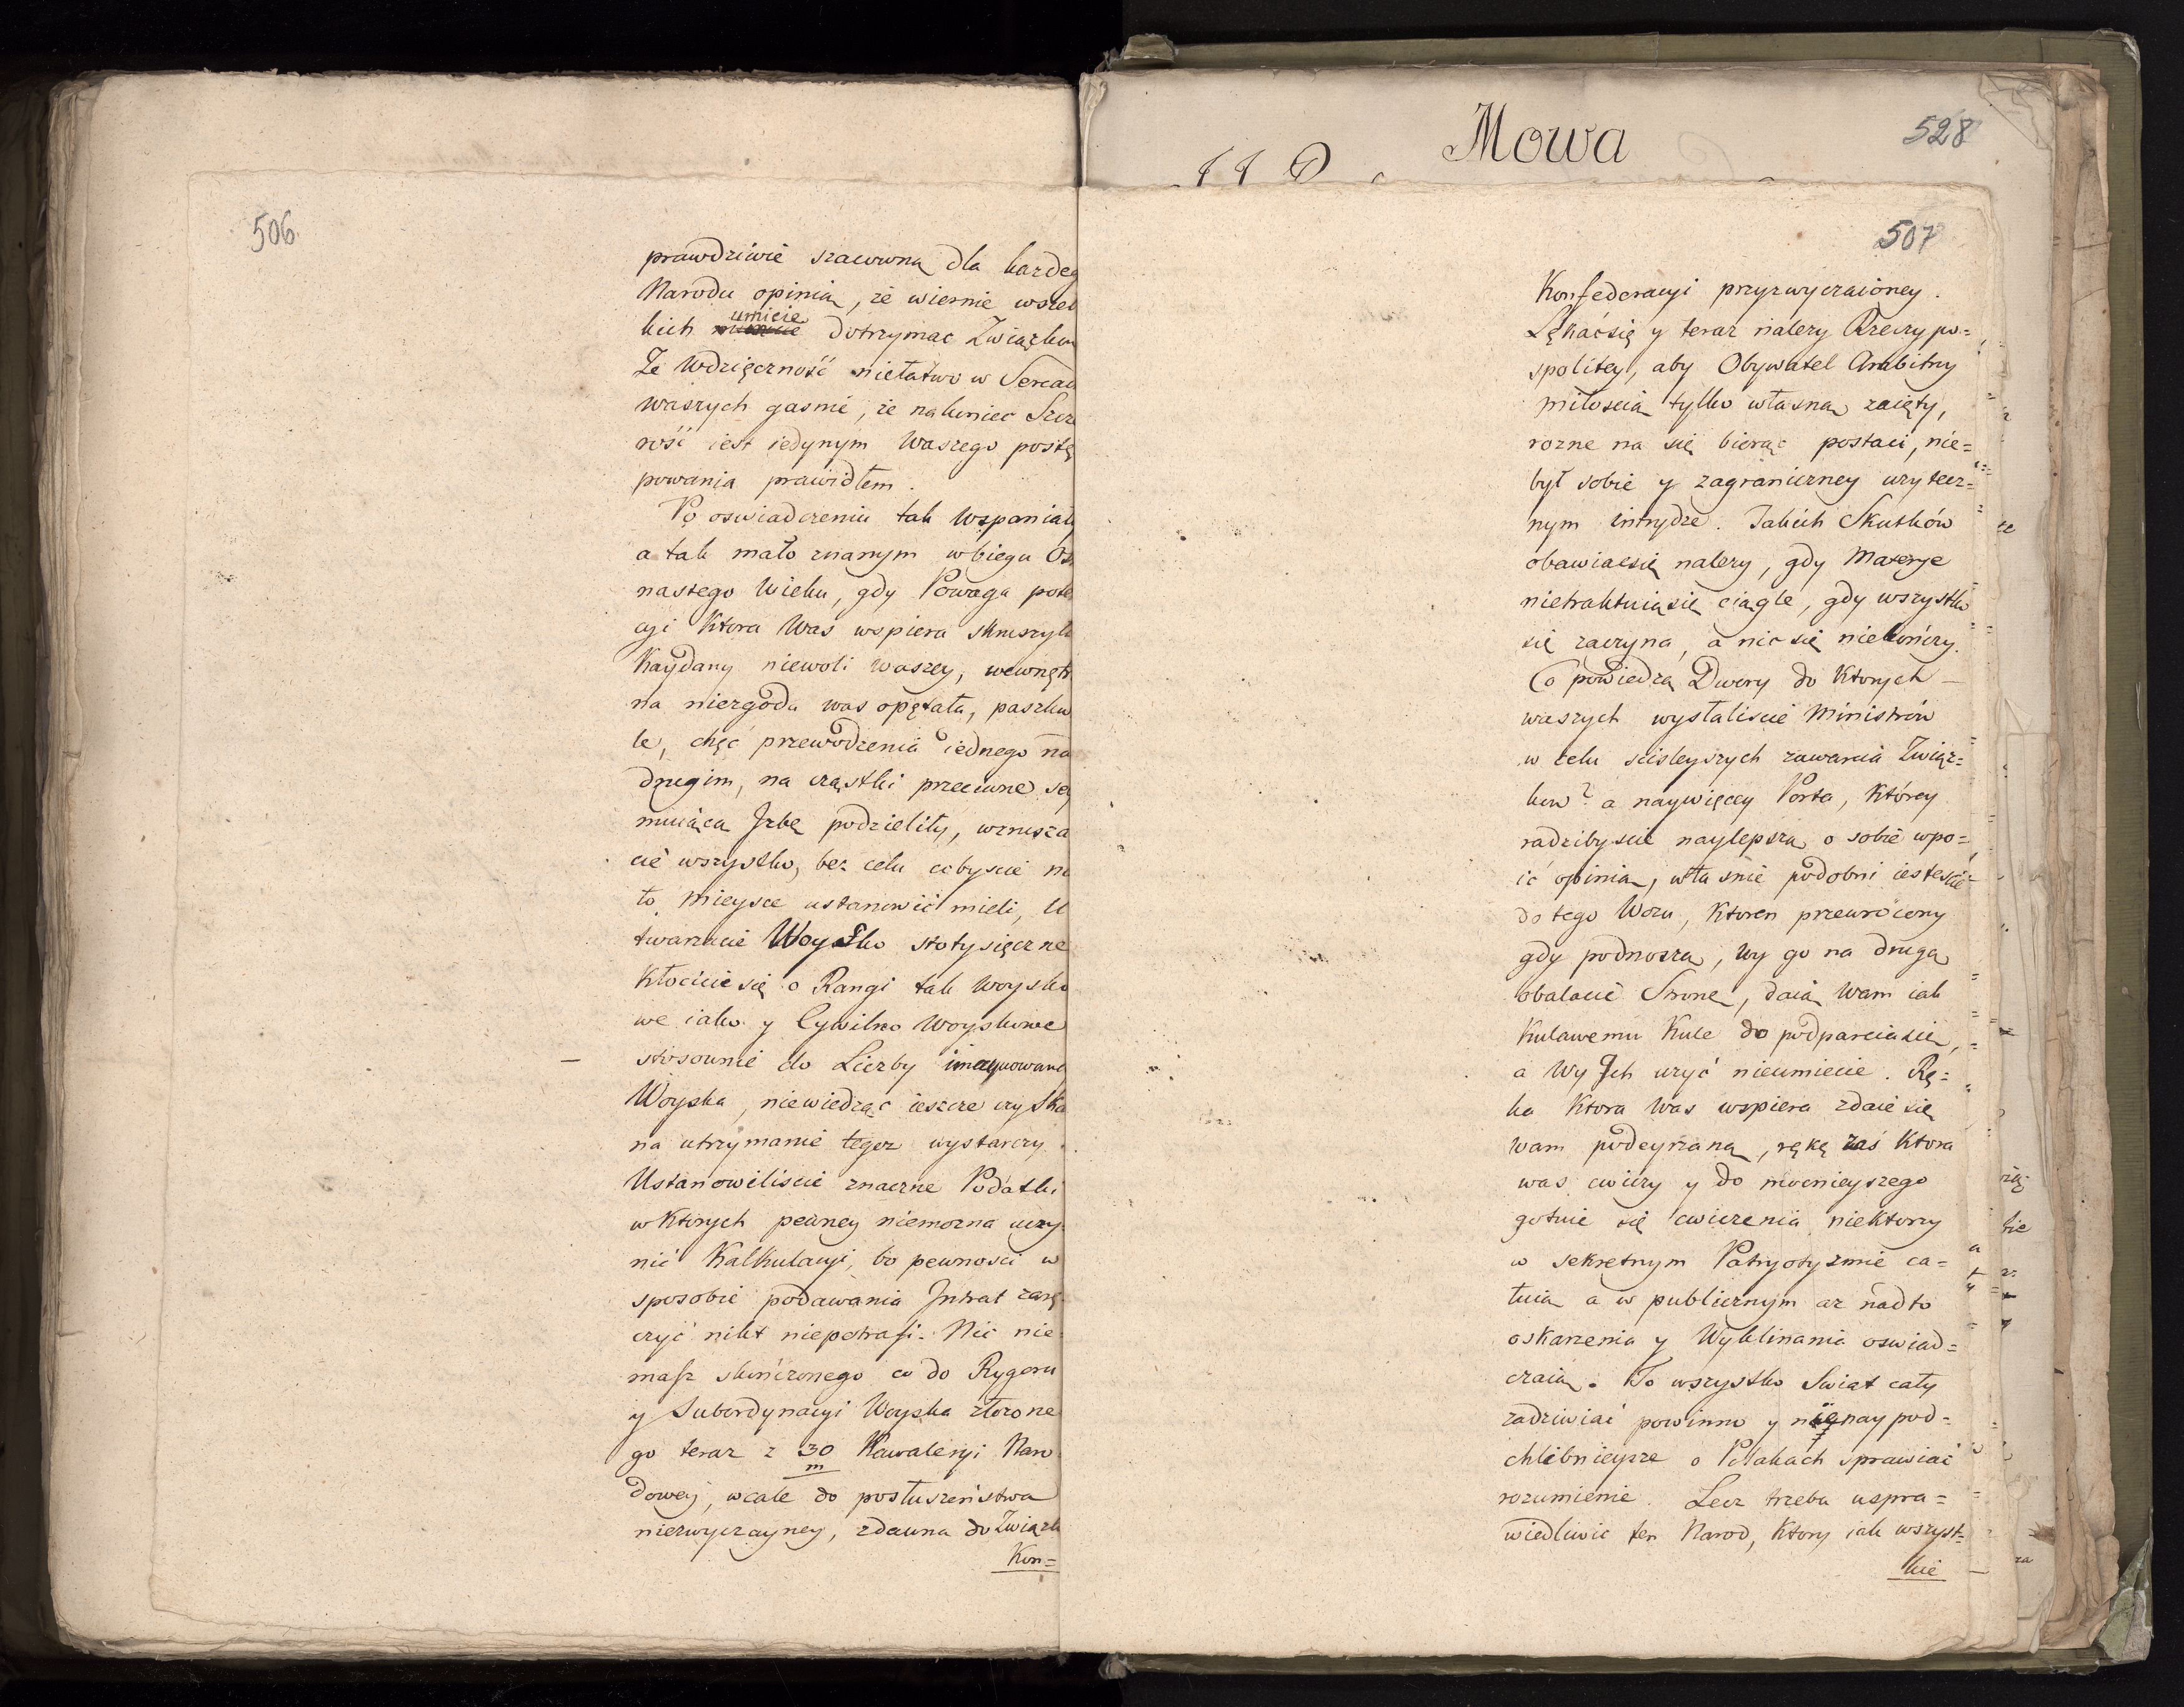 506
prawdziwie szacowną dla kazdeg
Narodu opinią, że wiernie wszel
kich umiecie dotrzymac Związkow
Ze Wdzięczność niełatwo w Sercach
waszych gasnie, że nakoniec Szcze
rość iest iedynym Waszego postę
powania prawidłem.
Po oswiadczeniu tak Wspaniały
a tak mało znanym w biegu Os
nastego Wieku, gdy Powaga pote
cyi Ktora Was wspiera skruszyła
Kaydany niewoli waszey, wewnętr
na niezgoda was opętała, paszkw
le, chęć przewodzenia iednego na
drugim, na cząstki przeciwne sey
muiącą Jzbę podzieliły, wzrusza
cie wszystko, bez celu cobyscie na
to mieysce ustanowić mieli, U
twarzacie Woysko stotysięczne
Kłocicie się o Rangi tak Woysko
we iako y Cywilno Woyskowe
stosownie do Liczby imaginowane
Woyska, niewiedząc ieszcze czy Ska
na utrzymanie tegoz wystarczy.
Ustanowiliscie znaczne Podatki
w Ktorych pewney niemozna uczy
nić Kalkulacyi, bo pewnosci w
sposobie podawania Jntrat zarę
czyć nikt niepotrafi. Nic nie
masz skończonego co do Rygoru
y Subordynacyi Woyska złozone
go teraz z 30 Kawaleryi Naro
m
dowej, wcale do posłuszeństwa
niezwyczayney, zdawna do Związk
Kon=
Mowa
528
507
Konfederacyi przyzwyczaioney.
Lękać się y teraz nalezy Rzeczypo=
spolitey, aby Obywatel Ambitny
miłoscią tylko własną zaięty,
rozne na się biorąc postaci, nie=
był sobie y zagraniczney uzytecz=
nym intrydze. Jakich Skutków
obawiac się nalezy, gdy Materye
nietraktuią się ciągle, gdy wszystko
się zaczyna, a nic się niekończy.
Co powiedzą Dwory do Ktorych
waszych wysłaliscie Ministrów
w celu scisleyszych zawarcia Związ=
kow? a naywięcey Porta, Którey
radzibyscie naylepszą o sobie wpo=
ić opinią, własnie podobni iestescie
do tego Wozu, Ktoren przewrócony
gdy podnoszą, Wy go na drugą
obalacie Stronę, daią Wam iak
Kulawemu Kule do podparcia się,
a Wy Jch uzyć nieumiecie. Rę=
ka Ktora Was wspiera zdaie się
wam podeyrzaną, rękę zaś Ktora
was cwiczy y do mocnieyszego
gotuie się cwiczenia niektorzy
w sekretnym Patryotyzmie ca=
łuią a w publicznym az nadto
oskarzenia y Wyklinania oswiad=
czaią. To wszystko Swiat cały
zadziwiać powinno y nienaypod=
chlebnieysze o Polakach sprawiać
rozumienie. Lecz trzeba uspra=
wiedliwic ten Narod, Ktory iak wszyst=
kie